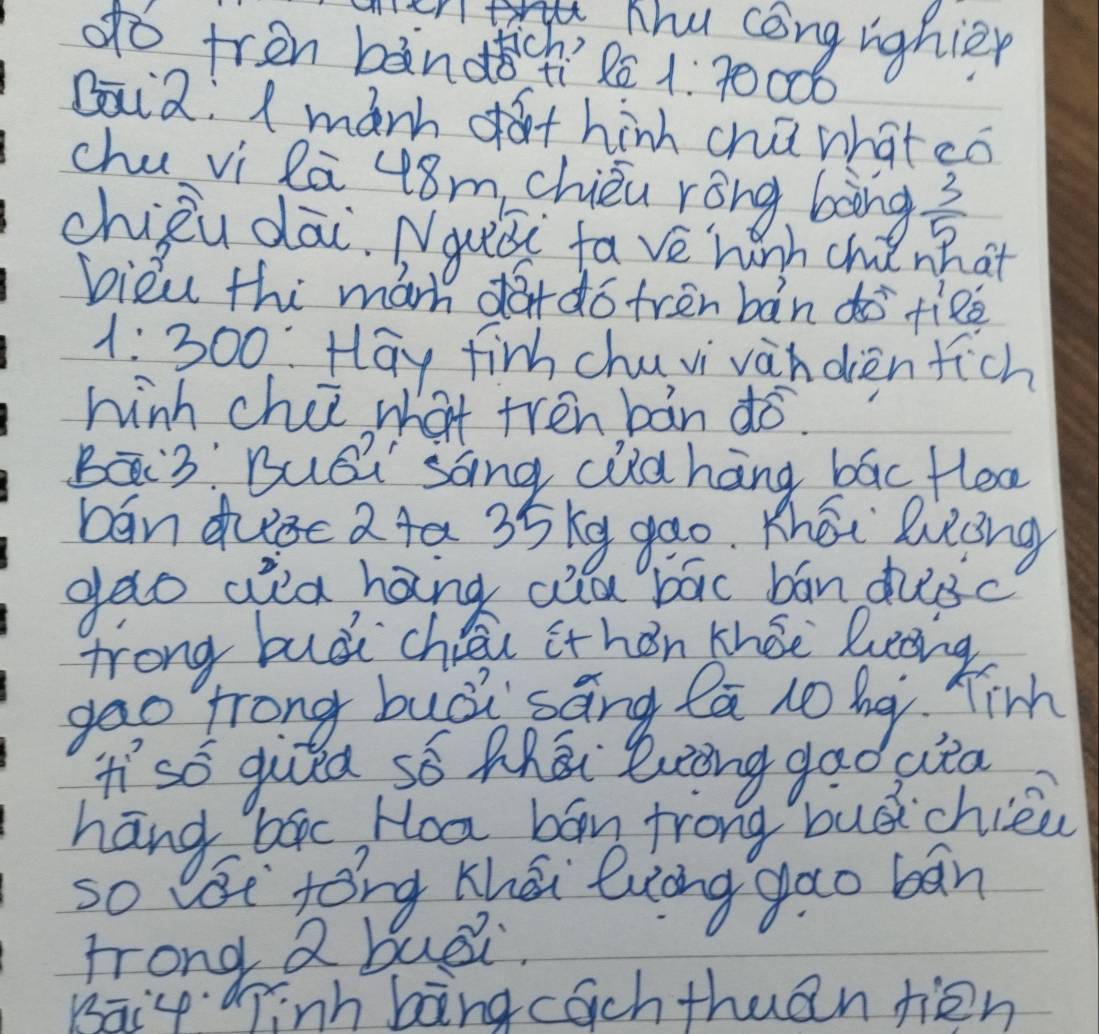 Khu công nghiệp
đó trên bản đồ tích, tỉ lệ 1:70000
Bài 2: 1 mảnh đất hình chữ nhật có
chu vi là 48m, chiều rộng bằng 3/5
chiều dài. Người ta vẽ hình chữ nhật
biểu thị mảnh đất đó trên bản đồ tỉ lệ
1:300. Hãy tính chu vi và diện tích
hình chữ nhật trên bản đồ.
Bài 3: Buổi sáng cửa hàng bác Hoa
bán được 2 tạ 35 kg gạo. Khối lượng
gạo cửa hàng của bác bán được
trong buổi chiều ít hơn khối lượng
gạo trong buổi sáng là 10 kg. Tính
tỉ số giữa số khối lượng gạo cửa
hàng bác Hoa bán trong buổi chiều
so với tổng khối lượng gạo bán
trong 2 buổi.
Bài 4: Tính bằng cách thuận tiện